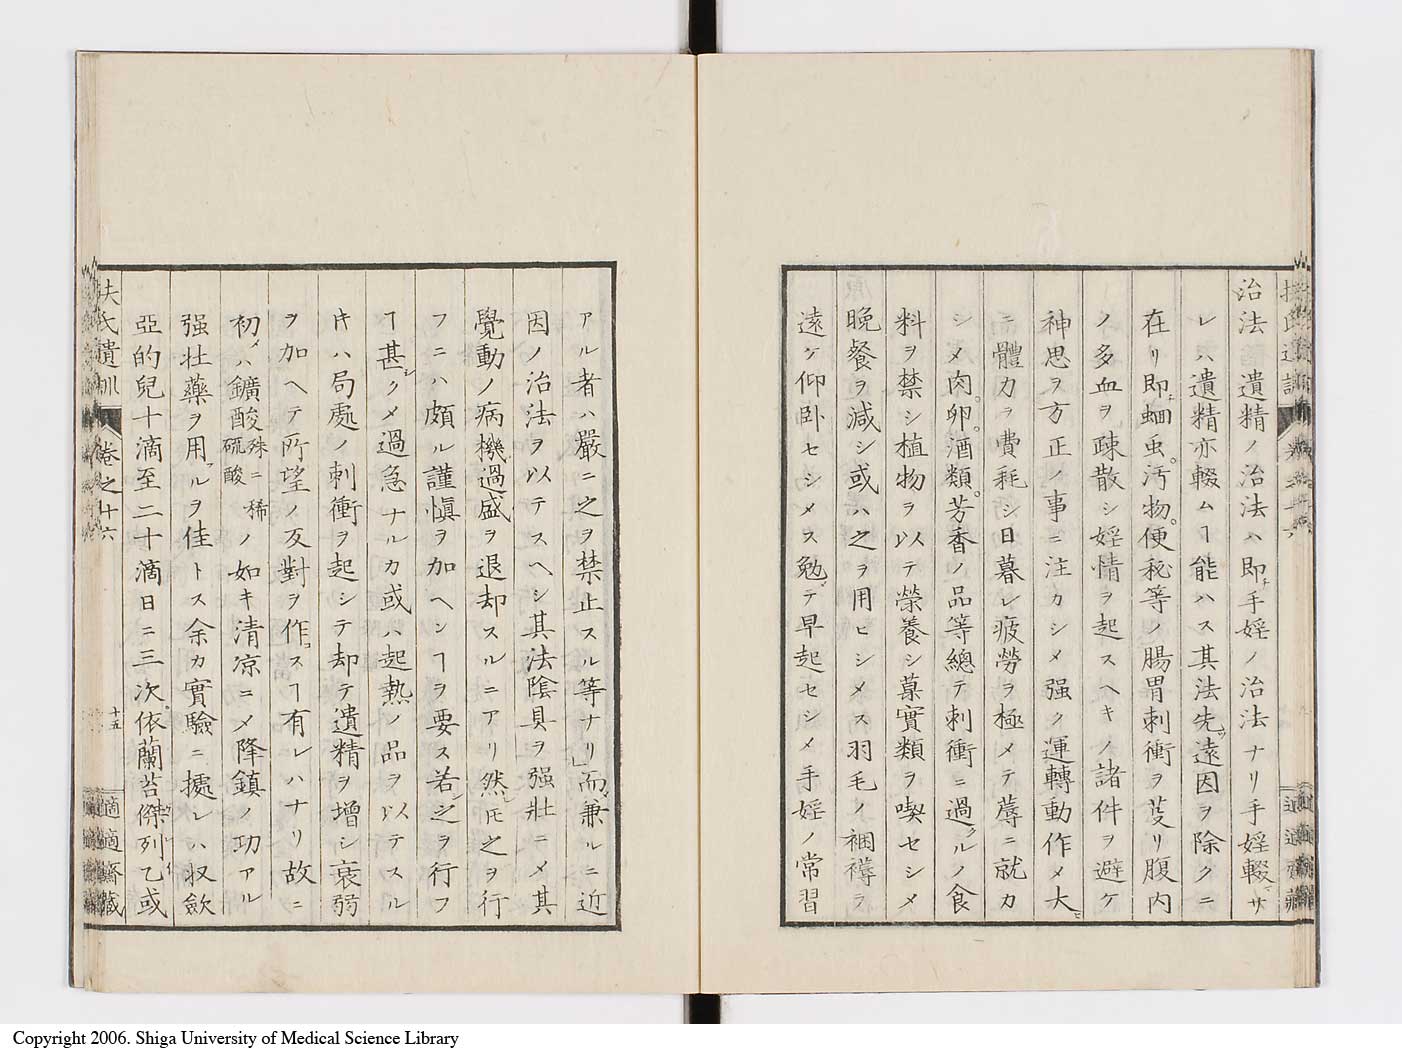 治法 遺精ノ治法ハ即チ手婬ノ治法ナリ手婬輟マサ
レハ遺精亦輟ムヿ能ハス其法先ツ遠因ヲ除クニ
在リ即チ蛔虫。汚物。便秘等ノ腸胃刺衝ヲ芟リ腹内
ノ多血ヲ疎散シ婬情ヲ起スヘキノ諸件ヲ避ケ
神思ヲ方正ノ事ニ注カシメ强ク運轉動作メ大ヒ
ニ體力ヲ費耗シ日暮レ疲勞ヲ極メテ蓐ニ就カ
シメ肉。卵。酒類。芳香ノ品等總テ刺衝ニ過クルノ食
料ヲ禁シ植物ヲ以テ榮養シ菓實類ヲ喫セシメ
晩餐ヲ減シ或ハ之ヲ用ヒシメス羽毛ノ裀褥ヲ
遠ケ仰卧セシメス勉テ早起セシメ手婬ノ常習
アル者ハ嚴ニ之ヲ禁止スル等ナリ」而メ兼ルニ近
因ノ治法ヲ以テスヘシ其法陰具ヲ强壯ニメ其
覺動ノ病機過盛ヲ退却スルニアリ然レ𪜈之ヲ行
フニハ頗ル謹愼ヲ加ヘンヿヲ要ス若シ之ヲ行フ
ヿ甚シクメ過急ナルカ或ハ起熱ノ品ヲ以テスル
キハ局處ノ刺衝ヲ起シテ却テ遺精ヲ增シ衰弱
ヲ加ヘテ所望ノ反對ヲ作スヿ有レハナリ故ニ
初メハ鑛酸殊ニ稀硫酸ノ如キ清凉ニメ降鎮ノ功アル
强壯藥ヲ用フルヲ佳トス余カ實驗ニ據レハ収斂
亞的兒十滴至二十滴日ニ三次。依蘭苔傑列乙或
扶氏遺訓 卷之十六
十五
適適齋藏